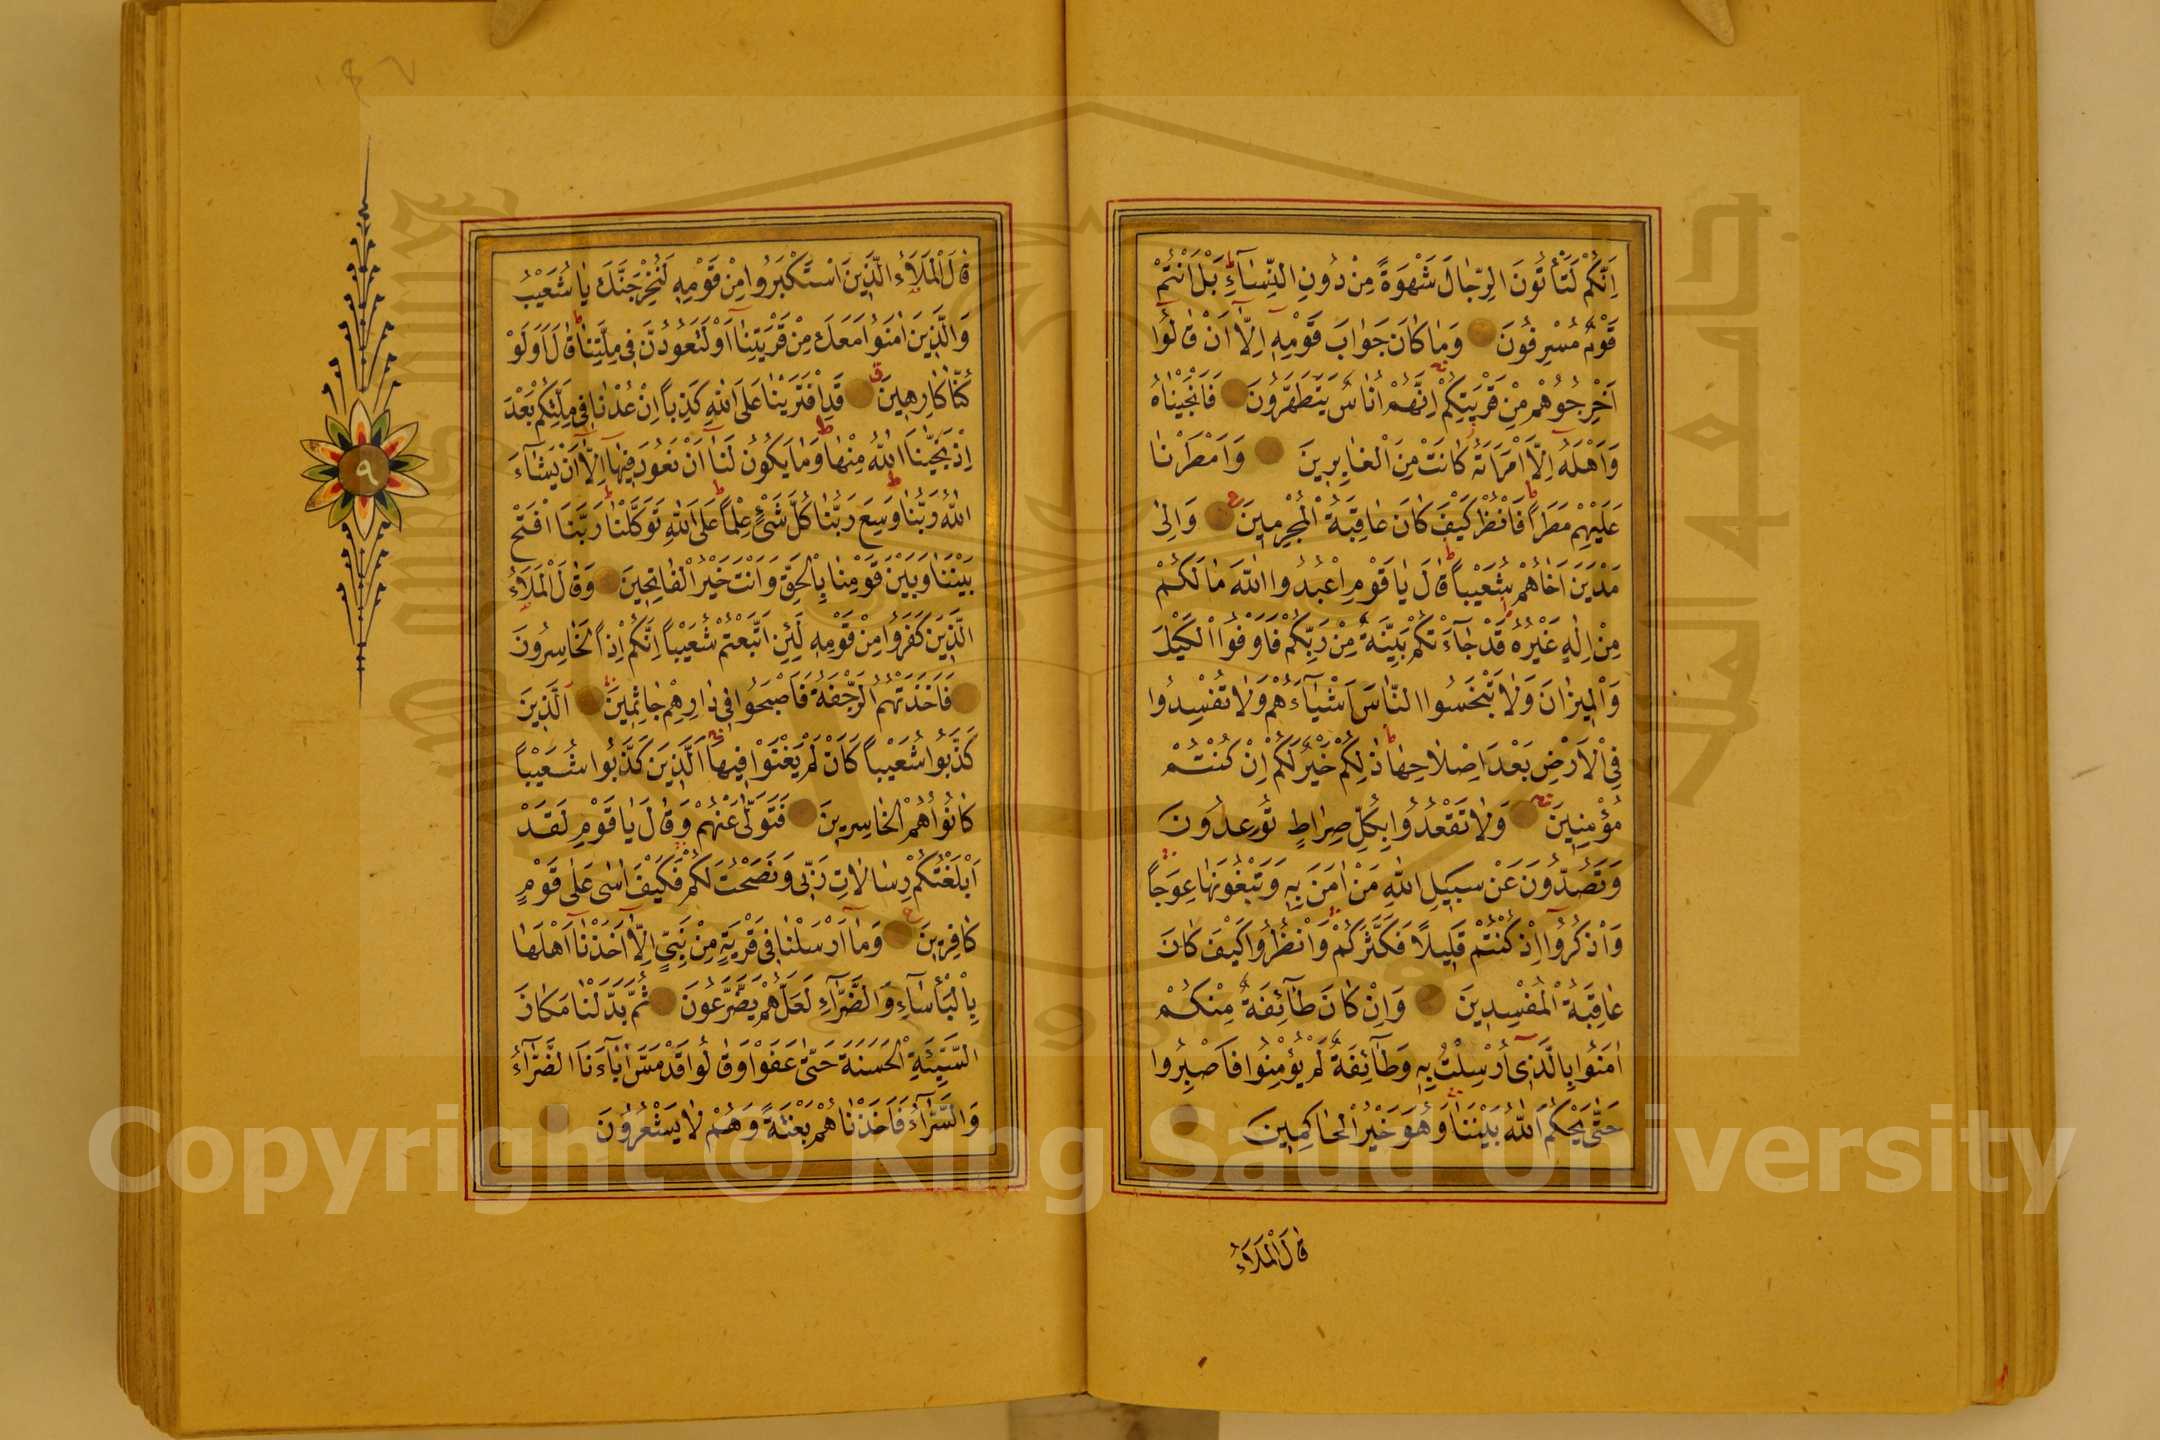 اِنَّكُمْ لَتَأْتُونَ الرِّجَالَ شَهْوَةً مِنْ دُونِ النِّسَآءِ بَلْ اَنْتُمْ
قَوْمٌ مُسْرِفُونَ وَمَا كَانَ جَوَابَ قَوْمِهِ اِلَّا اَنْ قَالُوا
اَخْرِجُوهُمْ مِنْ قَرْيَتِكُمْ اِنَّهُمْ اُنَاسٌ يَتَطَهَّرُونَ فَاَنْجَيْنَاهُ
وَاَهْلَهُ اِلَّا امْرَاَتَهُ كَانَتْ مِنَ الْغَابِرِينَ وَاَمْطَرْنَا
عَلَيْهِمْ مَطَرًا فَانْظُرْ كَيْفَ كَانَ عَاقِبَةُ الْمُجْرِمِينَ وَاِلٰى
مَدْيَنَ اَخَاهُمْ شُعَيْبًا قَالَ يَا قَوْمِ اعْبُدُوا اللّٰهَ مَا لَكُمْ
مِنْ اِلٰهٍ غَيْرُهُ قَدْ جَآءَتْكُمْ بَيِّنَةٌ مِنْ رَبِّكُمْ فَاَوْفُوا الْكَيْلَ
وَالْمِيزَانَ وَلَا تَبْخَسُوا النَّاسَ اَشْيَآءَهُمْ وَلَا تُفْسِدُوا
فِي الْاَرْضِ بَعْدَ اِصْلَاحِهَا ذٰلِكُمْ خَيْرٌ لَكُمْ اِنْ كُنْتُمْ
مُؤْمِنِينَ وَلَا تَقْعُدُوا بِكُلِّ صِرَاطٍ تُوعِدُونَ
وَتَصُدُّونَ عَنْ سَبِيلِ اللّٰهِ مَنْ اٰمَنَ بِهِ وَتَبْغُونَهَا عِوَجًا
وَاذْكُرُوا اِذْ كُنْتُمْ قَلِيلًا فَكَثَّرَكُمْ وَانْظُرُوا كَيْفَ كَانَ
عَاقِبَةُ الْمُفْسِدِينَ وَاِنْ كَانَ طَآئِفَةٌ مِنْكُمْ
اٰمَنُوا بِالَّذِى اُرْسِلْتُ بِهِ وَطَآئِفَةٌ لَمْ يُؤْمِنُوا فَاصْبِرُوا
حَتّٰى يَحْكُمَ اللّٰهُ بَيْنَنَا وَهُوَ خَيْرُ الْحَاكِمِينَ
قَالَ الْمَلَاُ
قَالَ الْمَلَاُ الَّذِينَ اسْتَكْبَرُوا مِنْ قَوْمِهِ لَنُخْرِجَنَّكَ يَا شُعَيْبُ
وَالَّذِينَ اٰمَنُوا مَعَكَ مِنْ قَرْيَتِنَا اَوْ لَتَعُودُنَّ فِي مِلَّتِنَا قَالَ اَوَلَوْ
كُنَّا كَارِهِينَ قَدِ افْتَرَيْنَا عَلَى اللّٰهِ كَذِبًا اِنْ عُدْنَا فِي مِلَّتِكُمْ بَعْدَ
اِذْ نَجّٰينَا اللّٰهُ مِنْهَا وَمَا يَكُونُ لَنَا اَنْ نَعُودَ فِيهَا اِلَّا اَنْ يَشَآءَ
اللّٰهُ رَبُّنَا وَسِعَ رَبُّنَا كُلَّ شَىْءٍ عِلْمًا عَلَى اللّٰهِ تَوَكَّلْنَا رَبَّنَا افْتَحْ
بَيْنَنَا وَبَيْنَ قَوْمِنَا بِالْحَقِّ وَاَنْتَ خَيْرُ الْفَاتِحِينَ وَقَالَ الْمَلَاُ
الَّذِينَ كَفَرُوا مِنْ قَوْمِهِ لَئِنِ اتَّبَعْتُمْ شُعَيْبًا اِنَّكُمْ اِذًا لَخَاسِرُونَ
فَاَخَذَتْهُمُ الرَّجْفَةُ فَاَصْبَحُوا فِي دَارِهِمْ جَاثِمِينَ اَلَّذِينَ
كَذَّبُوا شُعَيْبًا كَاَنْ لَمْ يَغْنَوْا فِيهَا اَلَّذِينَ كَذَّبُوا شُعَيْبًا
كَانُوا هُمُ الْخَاسِرِينَ فَتَوَلّٰى عَنْهُمْ وَقَالَ يَا قَوْمِ لَقَدْ
اَبْلَغْتُكُمْ رِسَالَاتِ رَبِّى وَنَصَحْتُ لَكُمْ فَكَيْفَ اٰسٰى عَلٰى قَوْمٍ
كَافِرِينَ وَمَا اَرْسَلْنَا فِي قَرْيَةٍ مِنْ نَبِيٍّ اِلَّا اَخَذْنَا اَهْلَهَا
بِالْبَأْسَآءِ وَالضَّرَّآءِ لَعَلَّهُمْ يَضَّرَّعُونَ ثُمَّ بَدَّلْنَا مَكَانَ
السَّيِّئَةِ الْحَسَنَةَ حَتّٰى عَفَوْا وَقَالُوا قَدْ مَسَّ اٰبَآءَنَا الضَّرَّآءُ
وَالسَّرَّآءُ فَاَخَذْنَاهُمْ بَغْتَةً وَهُمْ لَا يَشْعُرُونَ
٩
Copyright © King Saud University